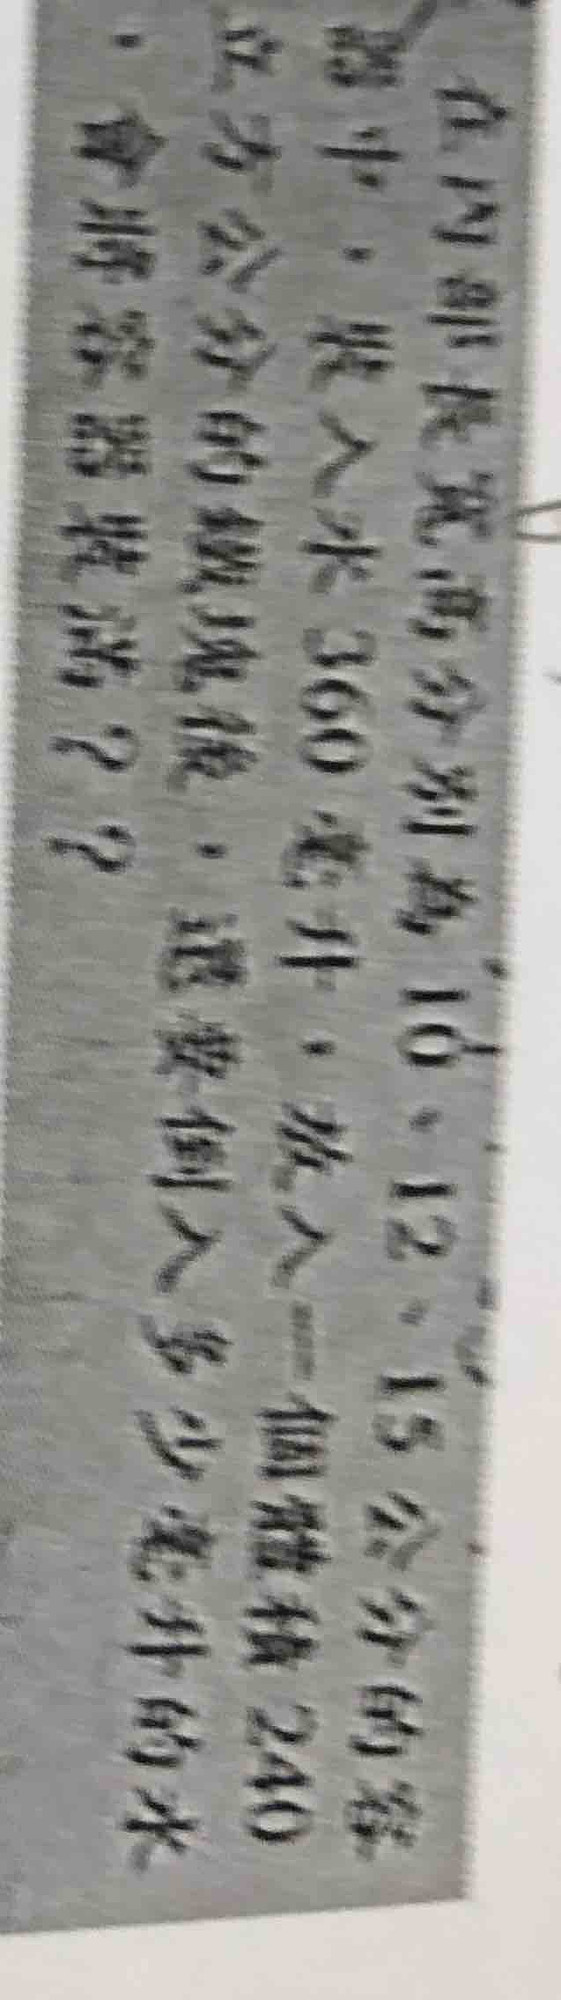 在內部長寬高分別為 10、12、15 公分的容
器中，裝入水 360 毫升，放入一個體積 240
立方公分的鐵塊後，還要倒入多少毫升的水
，會將容器裝滿？？